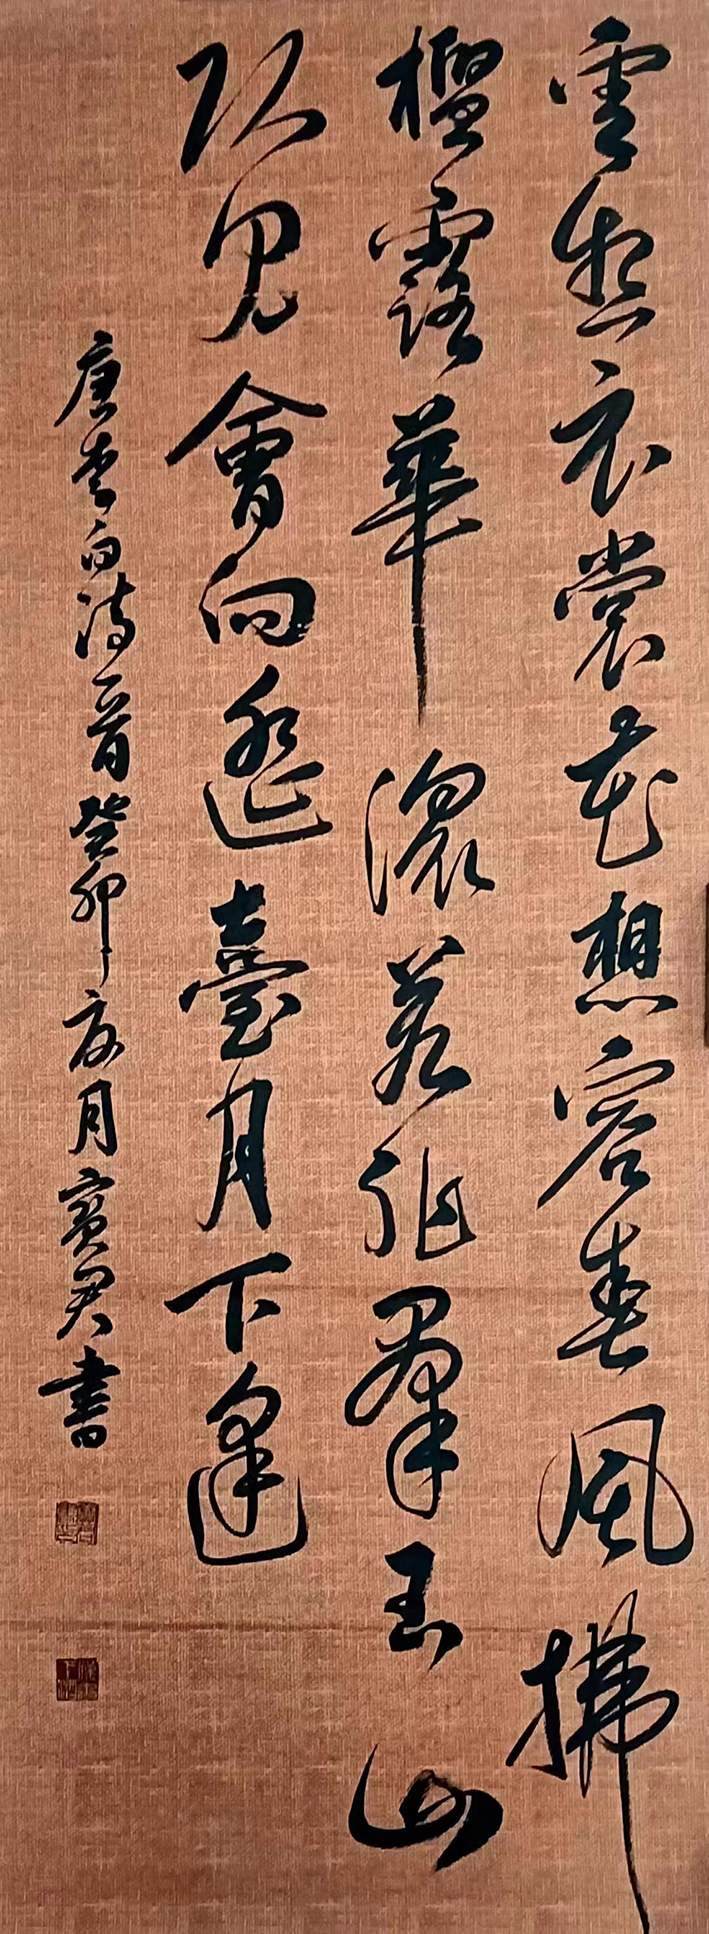 雲想衣裳花想容春風拂
檻露華濃若非羣玉山
頭見會向瑤臺月下逢
唐李白詩一首癸卯夏月賓君書